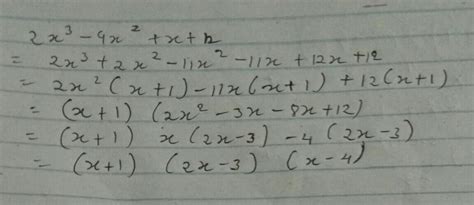 2x³ - 9x² + x + 12
= 2x³ + 2x² - 11x² - 11x + 12x + 12
= 2x² (x+1) - 11x (x+1) + 12 (x+1)
= (x+1) (2x² - 3x - 8x + 12)
= (x+1) x (2x-3) - 4 (2x-3)
= (x+1) (2x-3) (x-4)